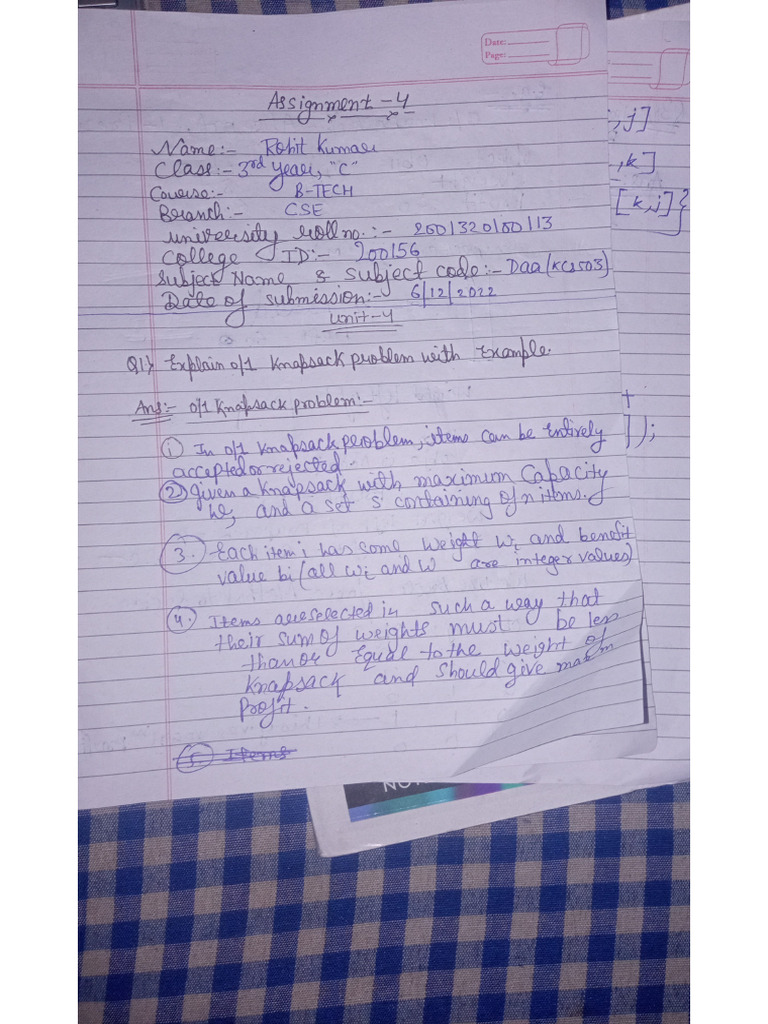 Date:
Page:
Assignment-4
Name:- Rohit Kumar
Class:- 3rd Year, "C"
Course:- B-TECH
Branch:- CSE
university roll no.:- 2001320100113
College ID:- 200156
Subject Name & Subject code:- Daa (KCS503)
Date of submission:- 6/12/2022
Unit-4
Q1) Explain 0/1 Knapsack problem with Example.
Ans:- 0/1 Knapsack problem:-
① In 0/1 Knapsack problem, items can be Entirely
accepted or rejected.
② given a Knapsack with maximum Capacity
and a set S containing of n items.
3. Each item i has some weight wi and benefit
value bi (all wi and w are integer values)
4. Items are selected in such a way that
their sum of weights must be less
than or Equal to the weight of
Knapsack and should give
Profit.
5. Items
, j]
, k]
[k,j]}
+
]);